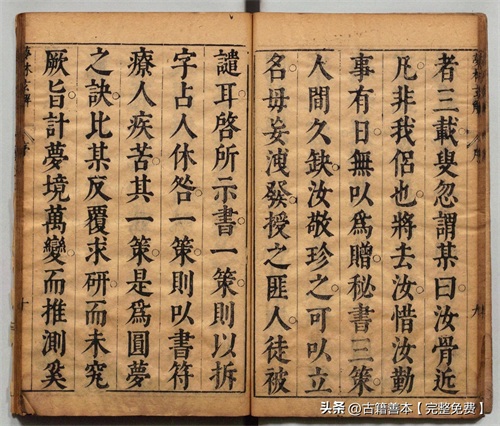 者三載叟忽謂某曰汝骨近
凡非我侶也將去汝惜汝勤
事有日無以爲贈秘書三策
人間久缺汝敬珍之可以立
名毋妄洩發授之匪人徒被
譴耳啓所示書一策則以拆
字占人休咎一策則以書符
療人疾苦其一策是爲圓夢
之訣比某反覆求研而未究
厥旨計夢境萬變而推測奚
十
头条 @古籍善本【完整免费】